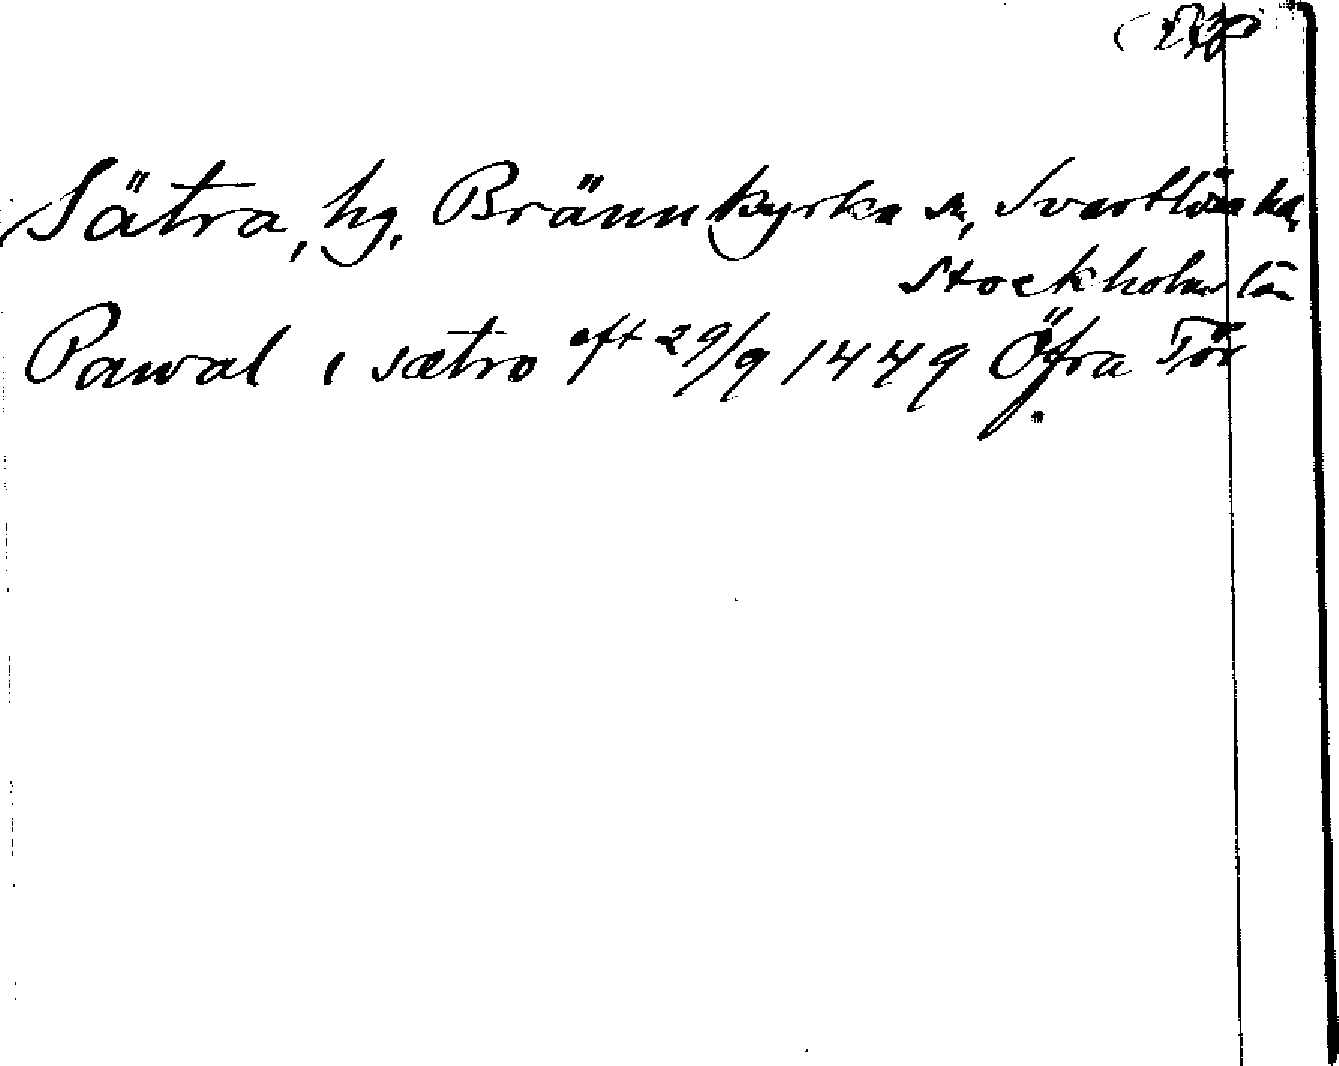 Sätra, hg, Brännkyrka sn, Svartlösa hd,
Stockholms län
Pawal i sætro eft 29/9 1449 Öfra Tör